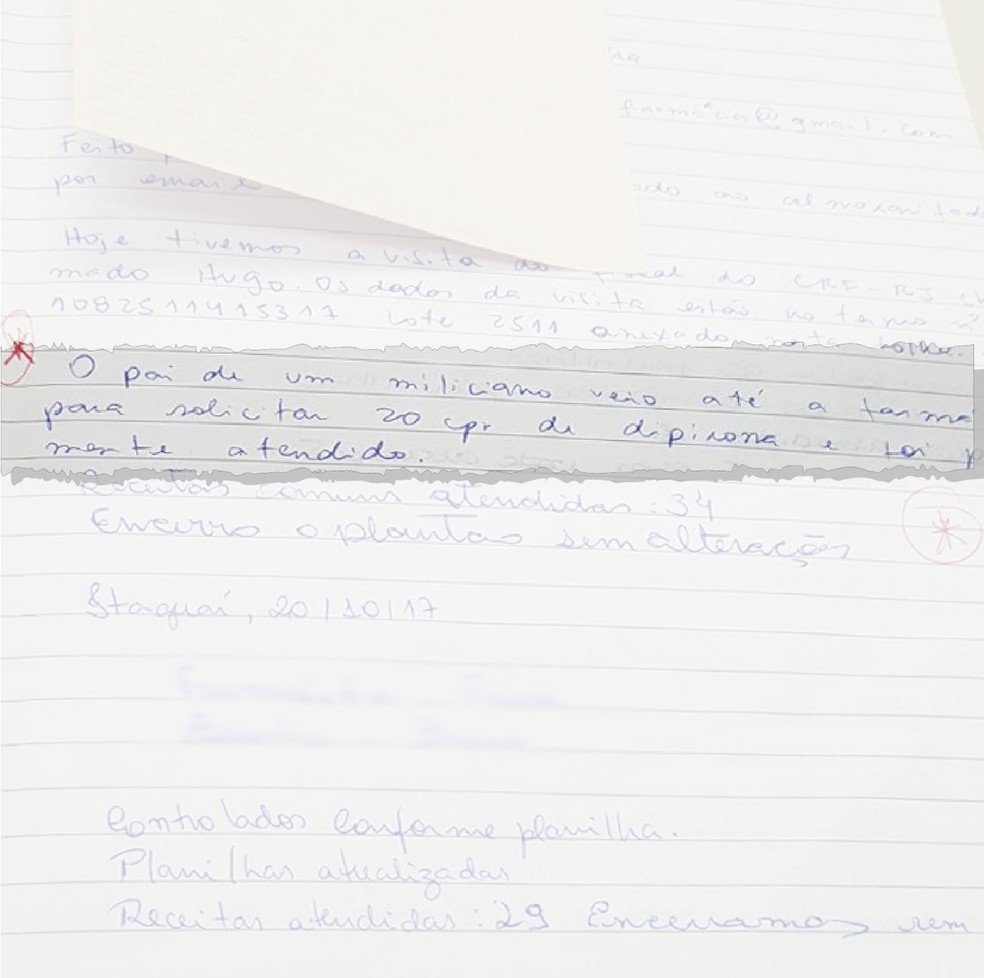 farmácia@gmail.com
Feito
por email ado ao almoxarifad
Hoje tivemos a visita do fiscal do CRF-RJ ch
mado Hugo. Os dados da visita estão no termo nº
1082511415317 Lote 2511 anexado nesta folha.
O pai de um miliciano veio até a farmá
para solicitar 20 cpr de dipirona e foi p
mente atendido.
Receitas comuns atendidas: 34
Encerro o plantão sem alterações
Itaguaí, 20/10/17
Controlados conforme planilha.
Planilhas atualizadas
Receitas atendidas: 29 Encerramos sem